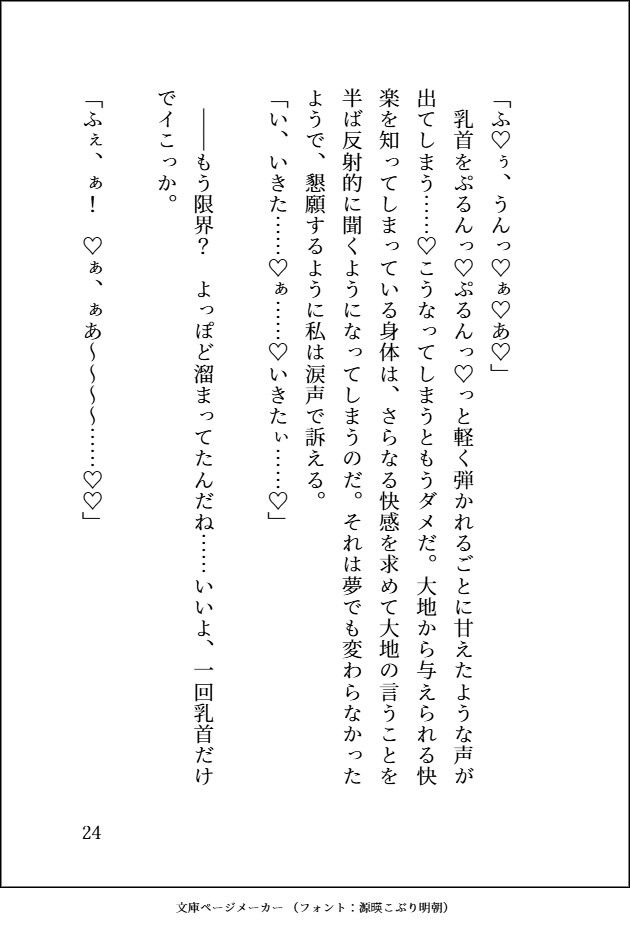 「ふ♡ぅ、うんっ♡ぁ♡あ♡」
　乳首をぷるんっ♡ぷるんっ♡っと軽く弾かれるごとに甘えたような声が
出てしまう……♡こうなってしまうともうダメだ。大地から与えられる快
楽を知ってしまっている身体は、さらなる快感を求めて大地の言うことを
半ば反射的に聞くようになってしまうのだ。それは夢でも変わらなかった
ようで、懇願するように私は涙声で訴える。
「い、いきた……♡ぁ……♡いきたぃ……♡」
　――もう限界？　よっぽど溜まってたんだね……いいよ、一回乳首だけ
でイこっか。
「ふぇ、ぁ！　♡ぁ、ぁあ～～～～……♡♡」
24
文庫ページメーカー（フォント：源暎こぶり明朝）